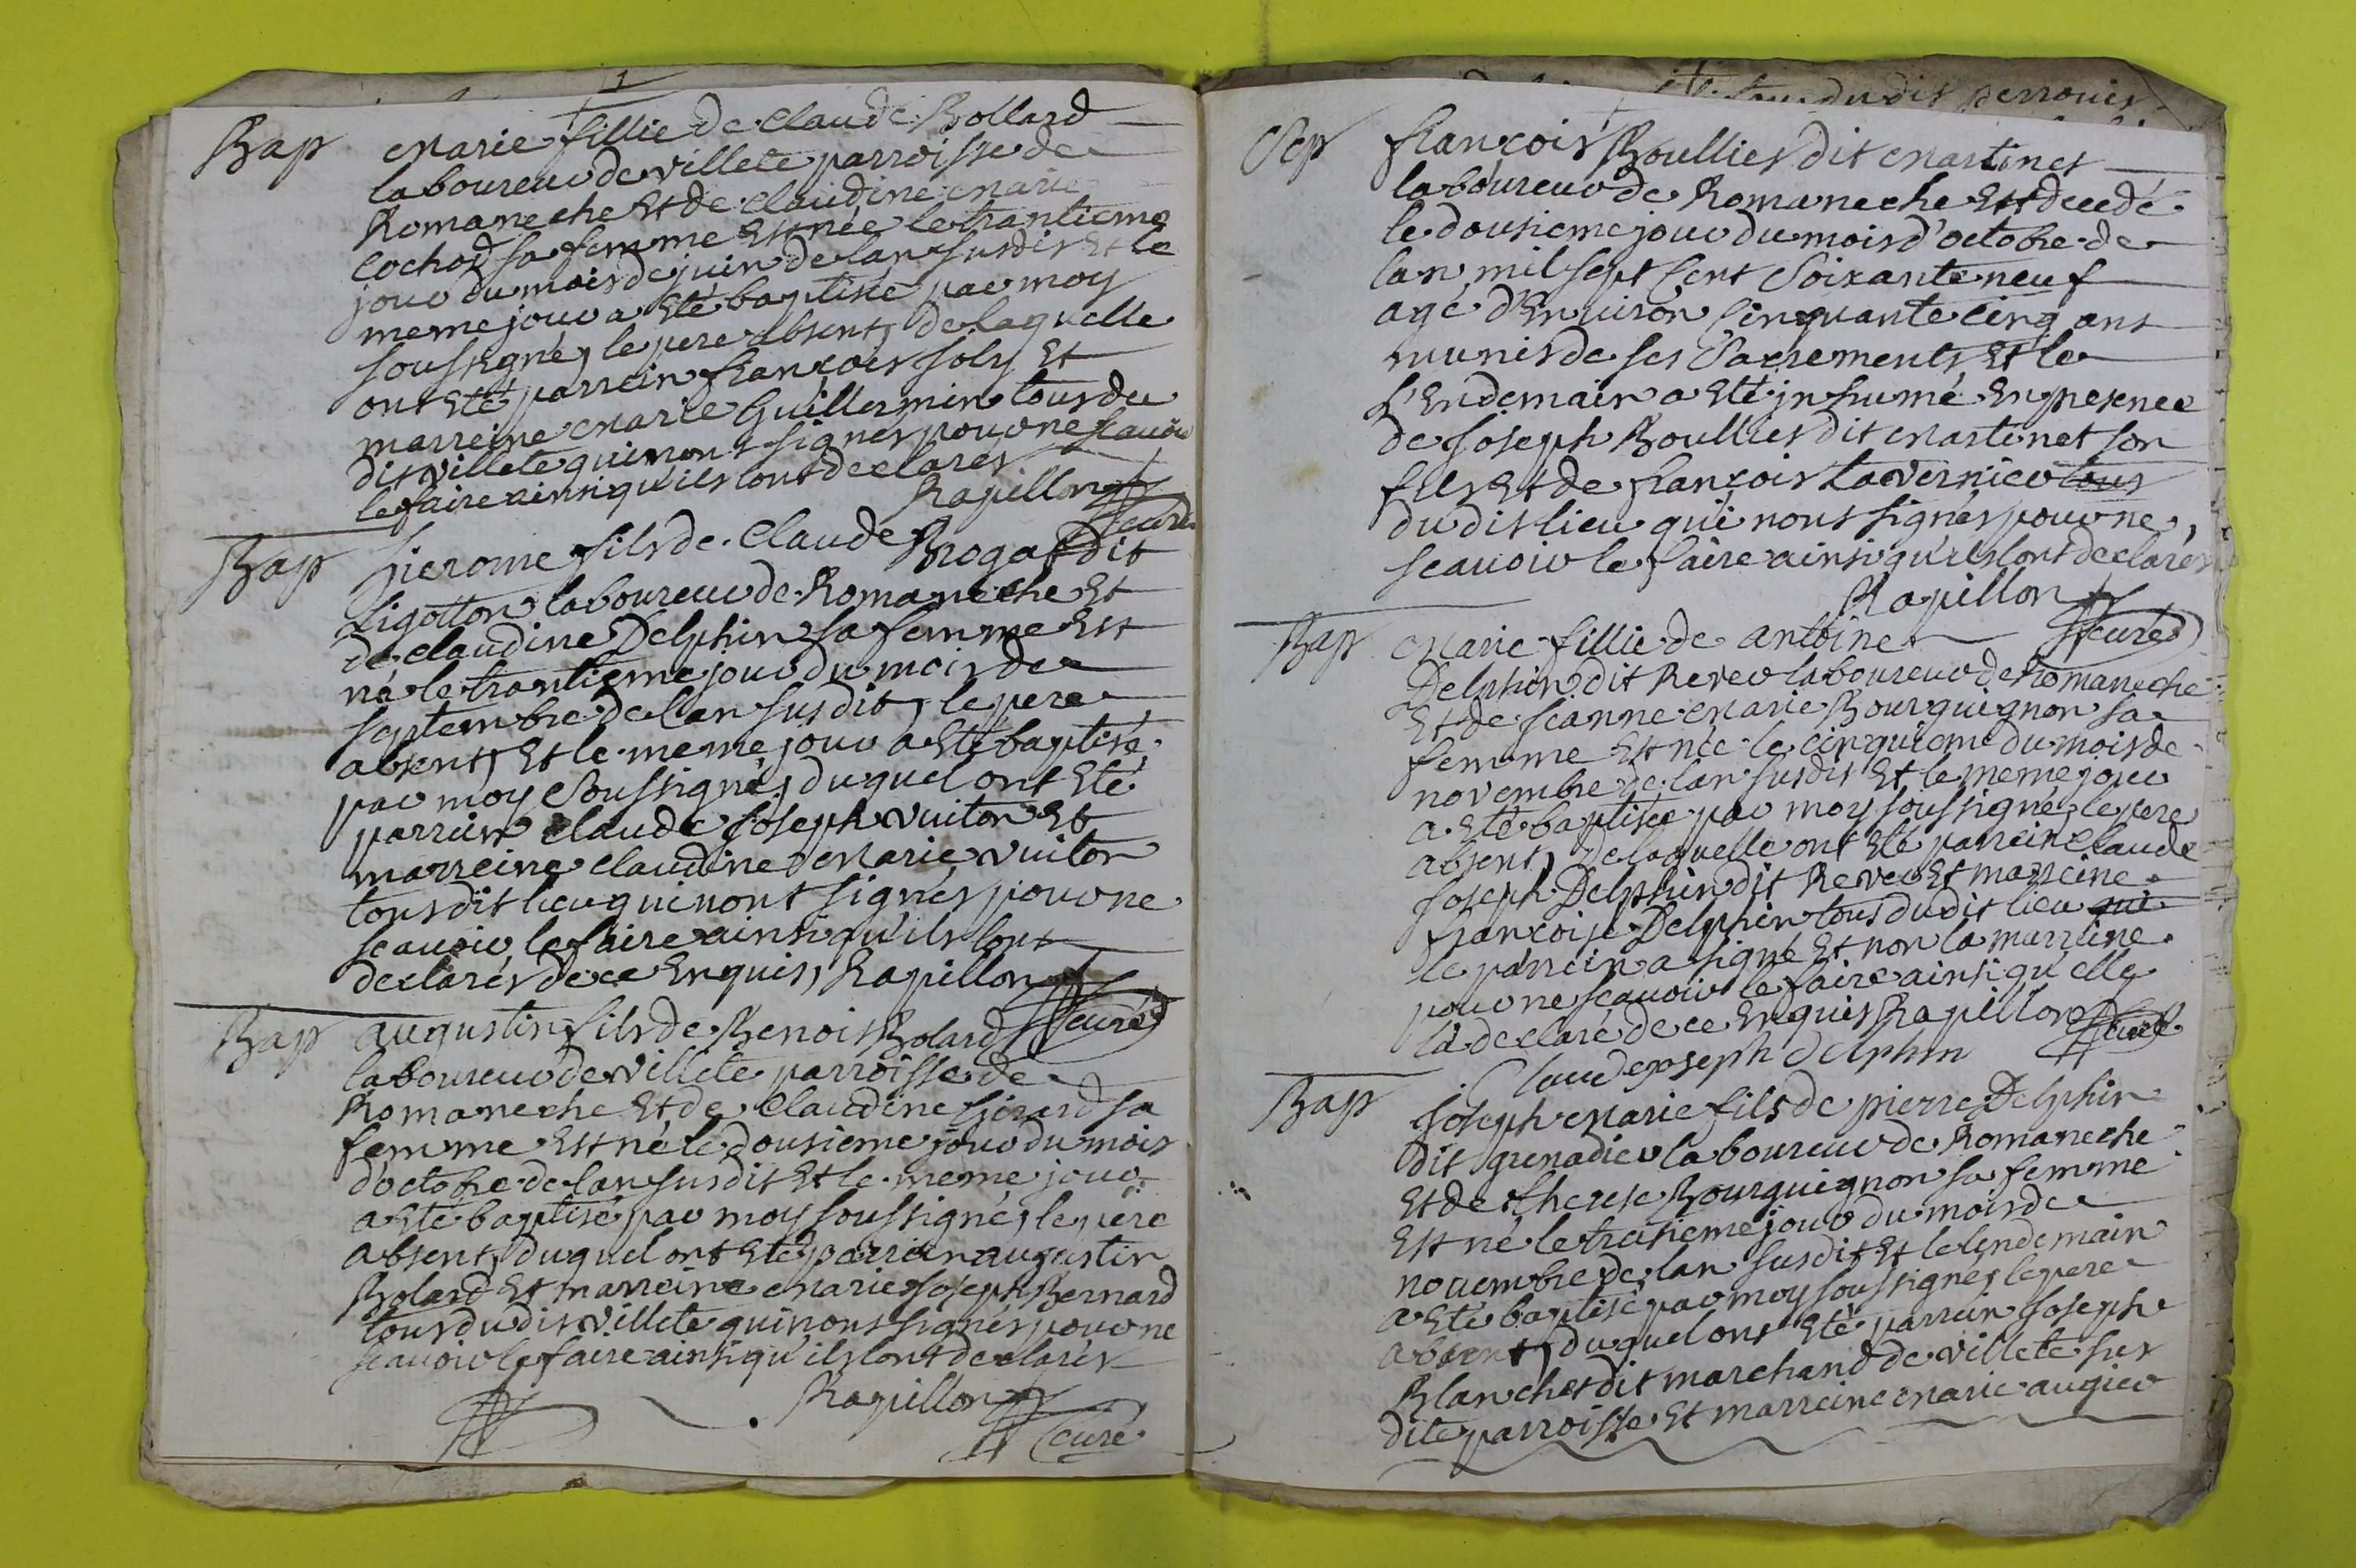 Bap Marie fillie de Claude Bollard
laboureur de villete parroisse de
Romaneche Et de Claudine Marie
Cochod sa femme Est née le trantieme
jour du mois de juin de lan susdit Et le
meme jour a Eté baptisée par moy
soussigné, le pere absent, de laquelle
ont Eté parrein françois joly Et
marreine Marie Guillermin tous du
dit villete qui nont signes pour ne scavoir
le faire ainsi qu'ils lont declarés
Rapillon
curé
Bap jierome fils de Claude Brogat dit
Ligotton laboureur de Romaneche Et
de Claudine Delphin sa femme Est
né le trantieme jour du mois de
septembre de lan susdit, le pere
absent, Et le meme jour a Eté baptisé
par moy soussigné, duquel ont Eté
parrein Claude joseph vuiton Et
marreine Claudine Marie vuiton
tous dit lieu qui nont signés pour ne
scavoir le faire ainsi qu'ils lont
declarés de ce Enquis, Rapillon
curé
Bap augustin fils de Benoit Bolard
laboureur de villete parroisse de
Romaneche Et de Claudine Girard sa
femme Est né le dousieme jour du mois
d'octobre de lan susdit Et le meme jour
a Eté baptisé par moy soussigné, le pere
absent, duquel ont Eté parrein augustin
Bolard Et marreine Marie joseph Bernard
tous du dit villete qui nont signés pour ne
scavoir le faire ainsi qu'ils lont declarés
Rapillon
curé
du dit perrouis
Sep françois Boullier dit Martinet
laboureur de Romaneche Est decedé
le dousieme jour du mois d'octobre de
lan mil sept cent soixante neuf
agé d'Environ cinquante cinq ans
munis de ses sacrements, Et le
l'Endemain a Eté inhumé En presence
de joseph Boullier dit Martinet son
fils Et de françois Lavernier tous
du dit lieu qui nont signés pour ne
scavoir le faire ainsi qu'ils lont declarés
Rapillon
curé
Bap Marie fillie de antoine
Delphin dit Rever laboureur de Romaneche
Et de jeanne Marie Bourguignon sa
femme Est née le cinquieme du mois de
novembre de lan susdit Et le meme jour
a Eté baptisée par moy soussigné, le pere
absent, de laquelle ont Eté parrein Claude
joseph Delphin dit Rever Et marreine
françoise Delphin tous du dit lieu qui
le parrein a signé Et non la marreine
pour ne scavoir le faire ainsi qu'elle
la declaré de ce Enquis Rapillon
curé
Claude joseph delphin
Bap joseph Marie fils de pierre Delphin
dit grenadier laboureur de Romaneche
Et de therese Bourguignon sa femme
Est né le treisieme jour du mois de
novembre de lan susdit Et le lendemain
a Eté baptisé par moy soussigné, le pere
absent, duquel ont Eté parrein joseph
Blanchet dit marchand de villete sus
dite parroisse Et marreine Marie augier